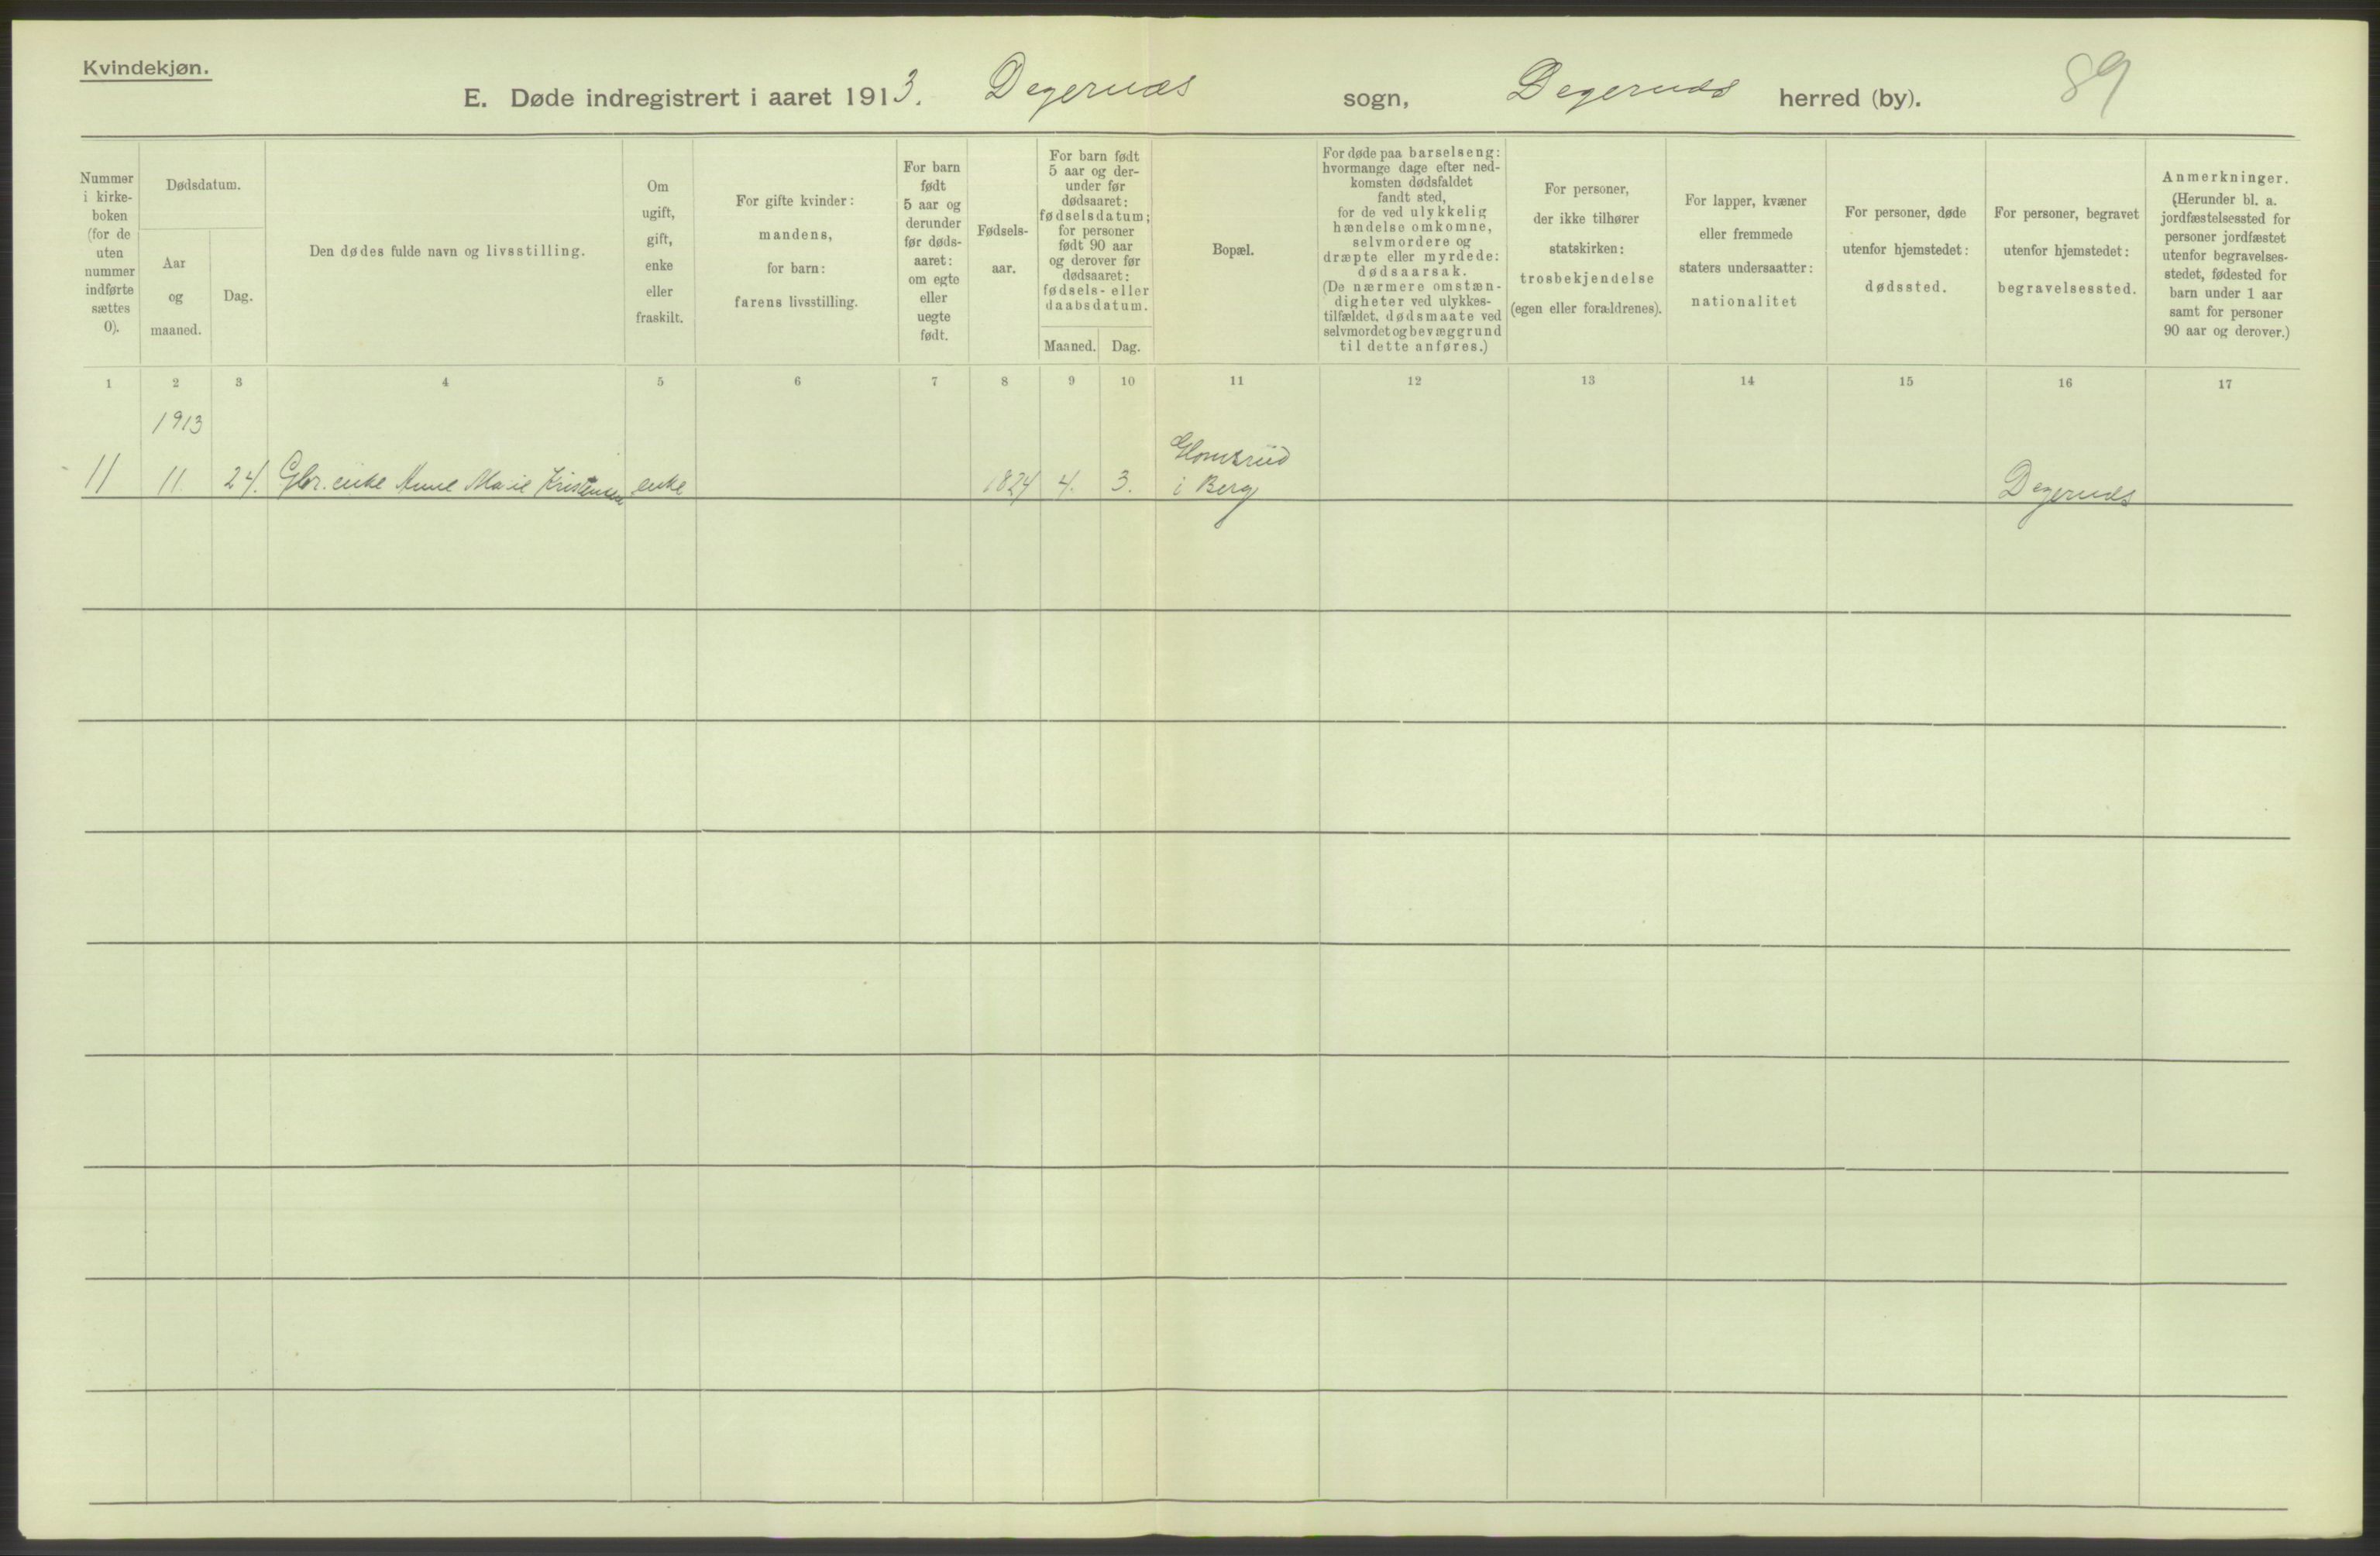 Kvindekjøn.
E. Døde indregistrert i aaret 1913. Degernes sogn, Degernes herred (by). 89
Nummer
i kirke-
boken
(for de
uten
nummer
indførte
sættes
0).
Dødsdatum.
Aar
og
maaned.
Dag.
Den dødes fulde navn og livsstilling.
Om
ugift,
gift,
enke
eller
fraskilt.
For gifte kvinder:
mandens,
for barn:
farens livsstilling.
For barn
født
5 aar og
derunder
før døds-
aaret:
om egte
eller
uegte
født.
Fødsels-
aar.
For barn født
5 aar og der-
under før
dødsaaret:
fødselsdatum;
for personer
født 90 aar
og derover før
dødsaaret:
fødsels- eller
daabsdatum.
Maaned. Dag.
Bopæl.
For døde paa barselseng:
hvormange dage efter ned-
komsten dødsfaldet
fandt sted,
for de ved ulykkelig
hændelse omkomne,
selvmordere og
dræpte eller myrdede:
dødsaarsak.
(De nærmere omstæn-
digheter ved ulykkes-
tilfældet, dødsmaate ved
selvmordet og bevæggrund
til dette anføres.)
For personer,
der ikke tilhører
statskirken:
trosbekjendelse
(egen eller forældrenes).
For lapper, kvæner
eller fremmede
staters undersaatter:
nationalitet
For personer, døde
utenfor hjemstedet:
dødssted.
For personer, begravet
utenfor hjemstedet:
begravelsessted.
Anmerkninger.
(Herunder bl. a.
jordfæstelsessted for
personer jordfæstet
utenfor begravelses-
stedet, fødested for
barn under 1 aar
samt for personer
90 aar og derover.)
1 2 3 4 5 6 7 8 9 10 11 12 13 14 15 16 17
1913
11 11 24. Gbr. enke Anne Marie Kristensen enke 1824 4. 3. i Berg Degernes